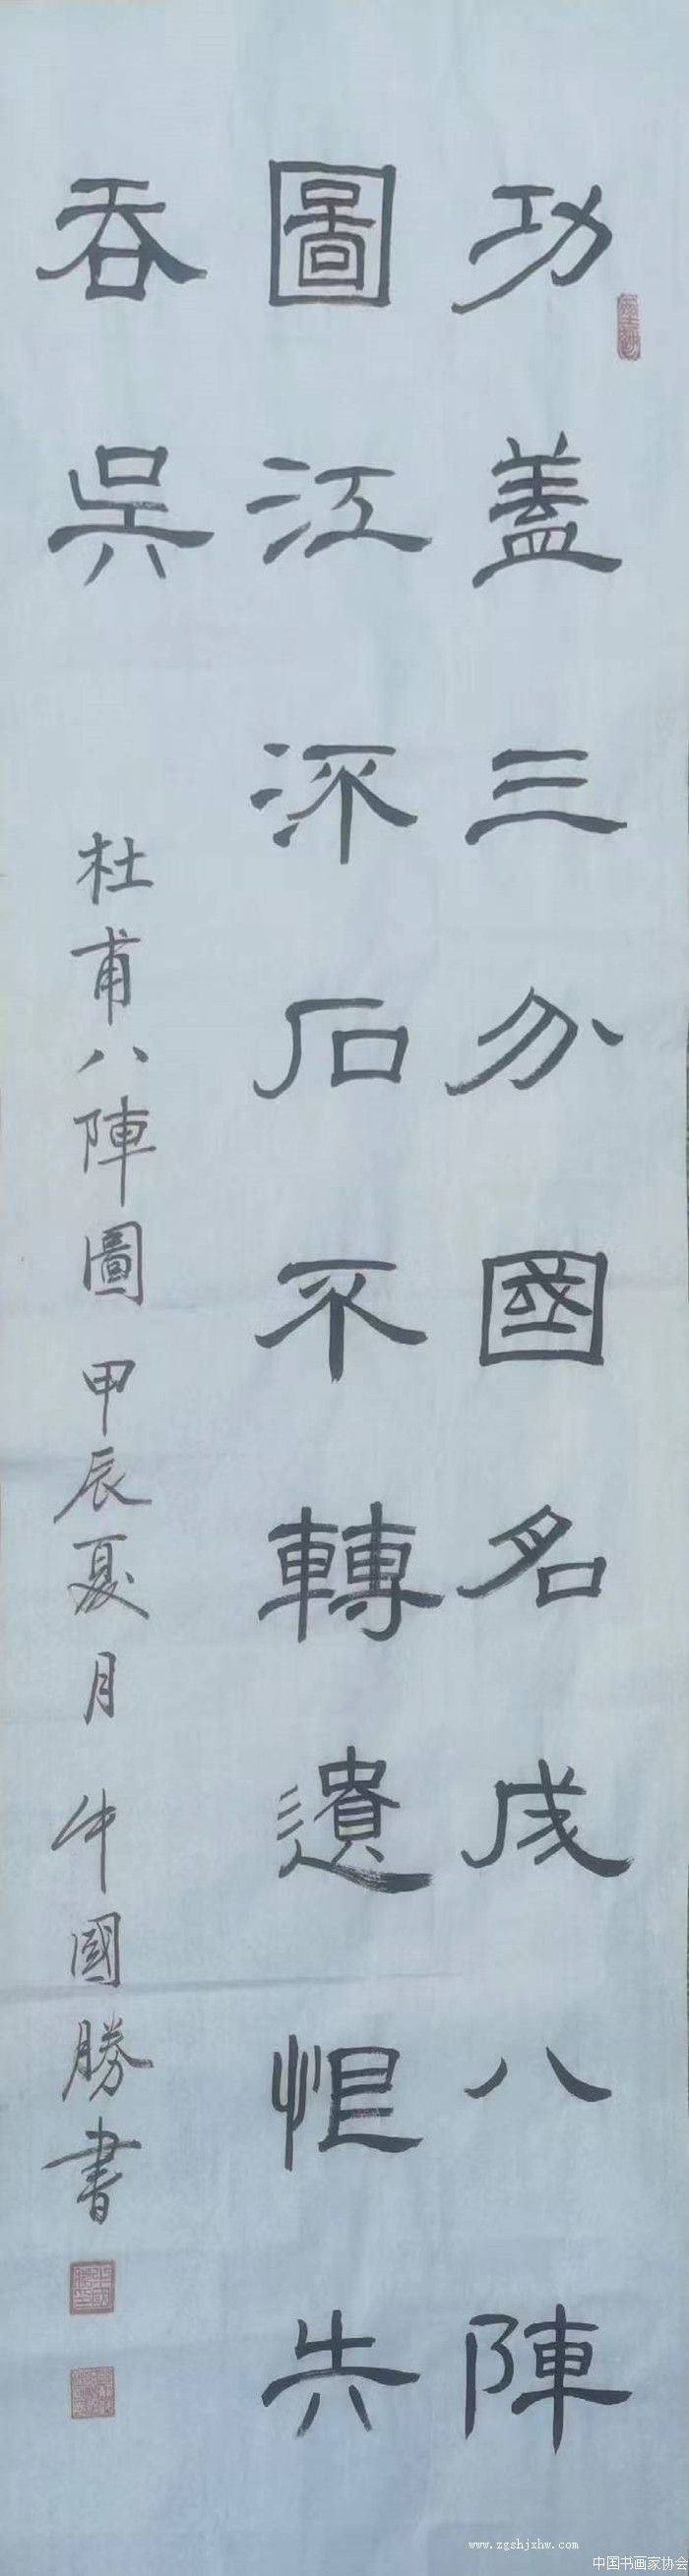 功蓋三分國名成八陣
圖江流石不轉遺恨失
吞吳
杜甫八陣圖 甲辰夏月 牛國勝書
www.zgshjxhw.com
中国书画家协会